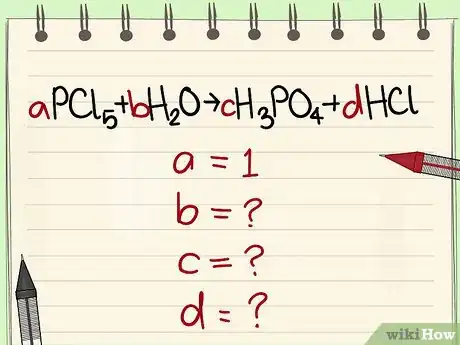 aPCl₅+bH₂O→cH₃PO₄+dHCl
a = 1
b = ?
c = ?
d = ?
wikiHow